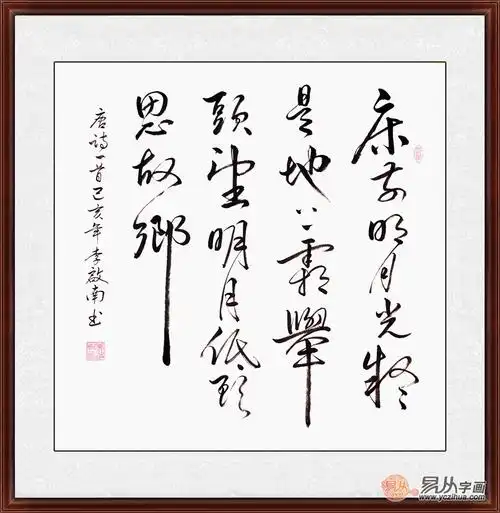 床前明月光疑
是地上霜舉
頭望明月低頭
思故鄉
唐詩一首己亥年李啟南书
易从字画
www.yczihua.com